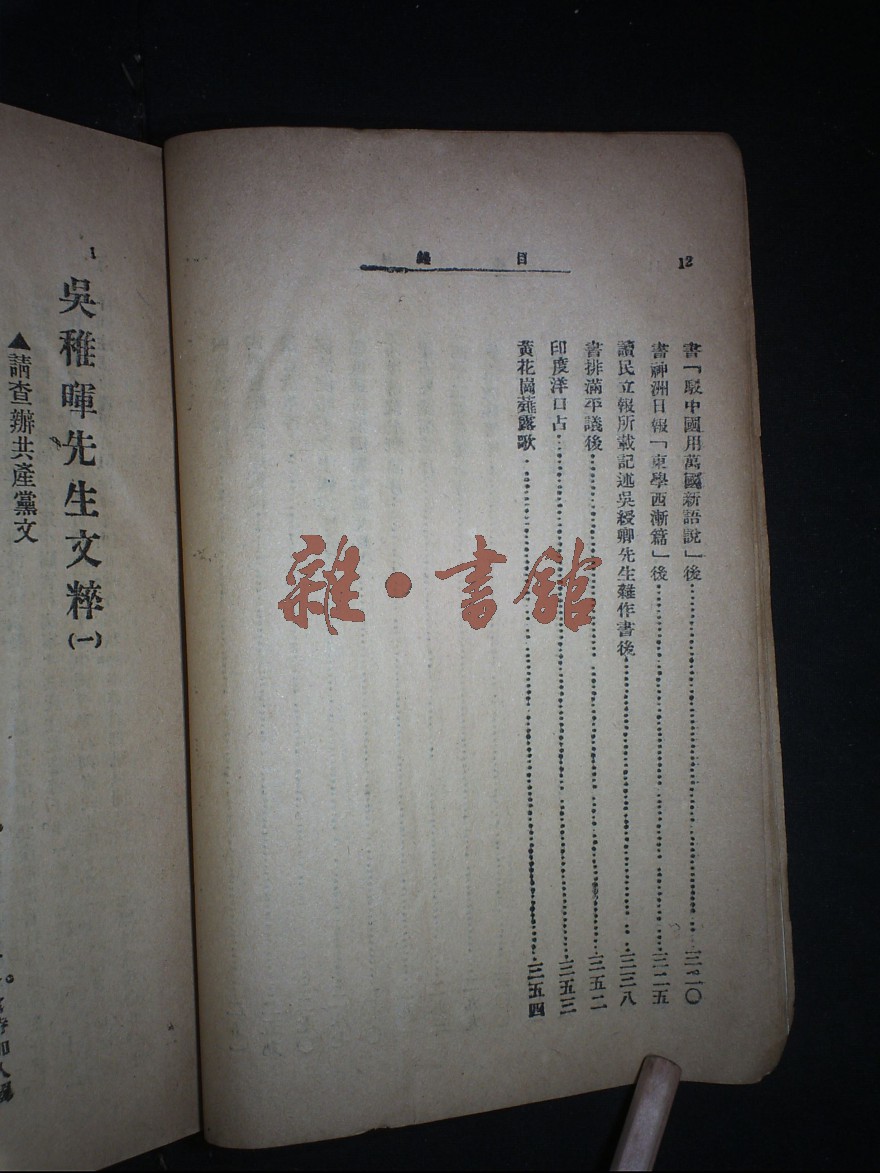 12
目錄
書「駁中國用萬國新語說」後……三二〇
書神洲日報「東學西漸篇」後……三二五
讀民立報所載記述吳綬卿先生雜作書後……三三八
書排滿平議後……三五二
印度洋口占……三五三
黃花崗薤露歌……三五四
雜·書館
1
吳稚暉先生文粹(一)
▲請查辦共產黨文